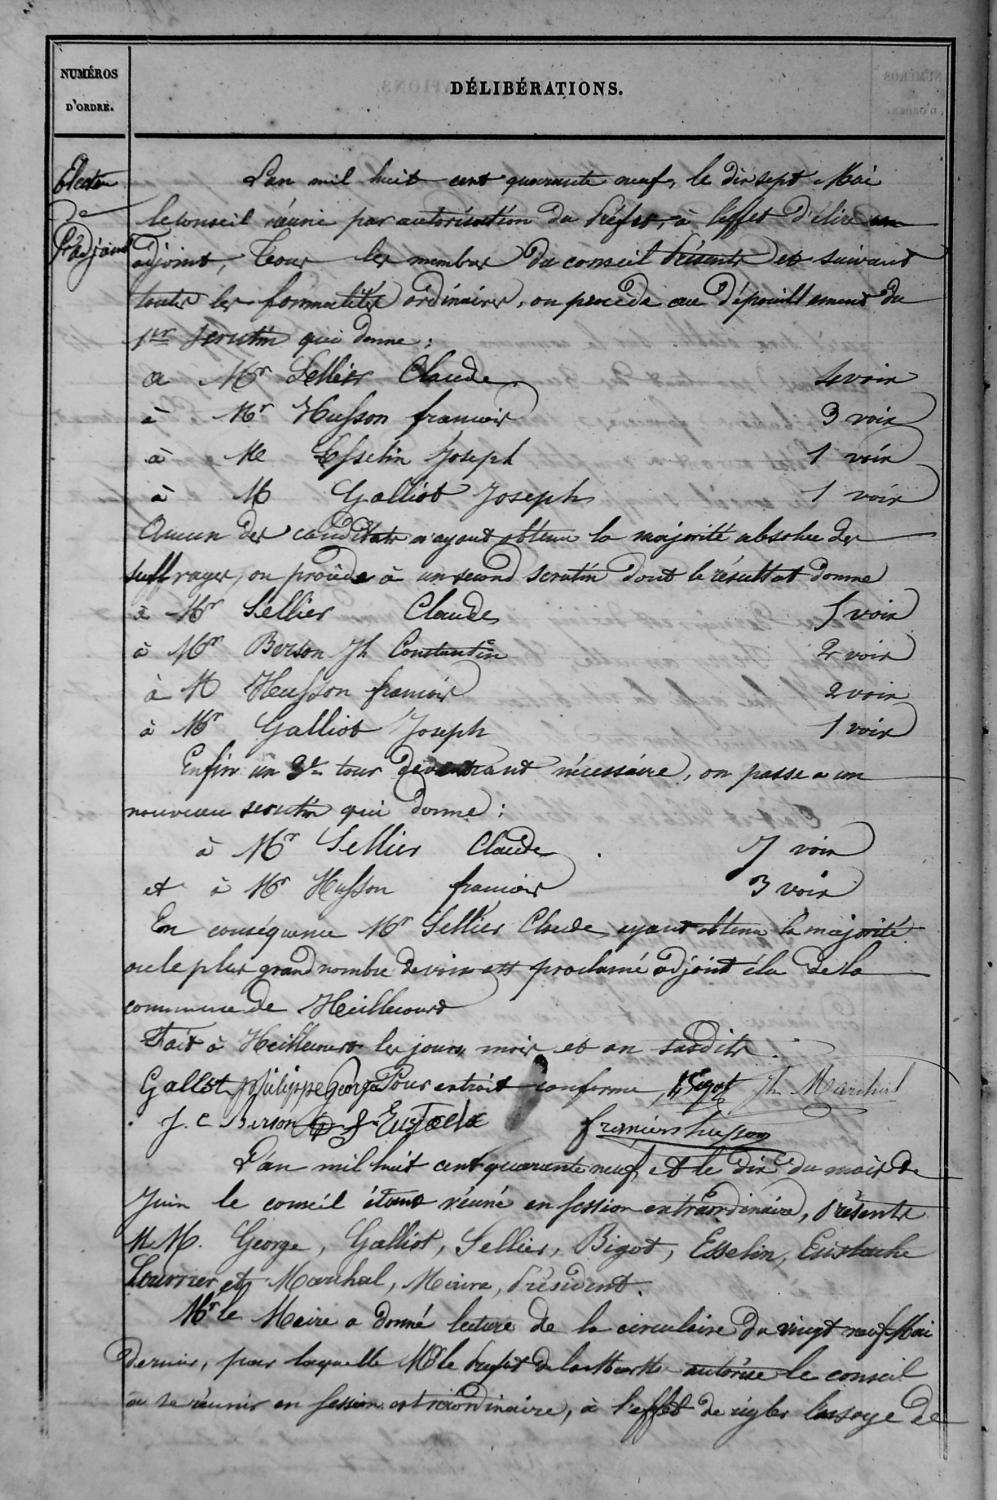 NUMÉROS
D'ORDRE.
DÉLIBÉRATIONS.
Election
De
l'adjoint
L'an mil huit cent quarante neuf, le dix sept Mai
le conseil réunie par autorisation du Préfet, à l'effet d'élire un
adjoint, Tous les membres du conseil Présents et suivant
toutes les formalités ordinaires, on procède au dépouillement du
1er scrutin qui donne :
a Mr Sellier Claude 4 voix
à Mr Husson francois 3 voix
à M Esselin Joseph 1 voix
à M Galliot Joseph 1 voix
Aucun des candidats n'ayant obtenu la majorité absolue des
suffrages, on procède à un second scrutin dont le résultat donne
à Mr Sellier Claude 5 voix
à Mr Berson Jh Constantin 2 voix
à M Husson francois 2 voix
à Mr Galliot Joseph 1 voix
Enfin un 3e tour devenant nécessaire, on passe a un
nouveau scrutin qui donne :
à Mr Sellier Claude 7 voix
et à Mr Husson francois 3 voix
En conséquence Mr Sellier Claude ayant obtenu la majorité
ou le plus grand nombre de voix est proclamé adjoint élu de la
commune de Heillecourt
Fait à Heillecourt les jours, mois et an susdits.
Gallot Philippe George Pour extrait conforme, Bigot Jh Marchal
J. C Berson J. Eustache francois husson
L'an mil huit cent quarante neuf, et le dix du mois de
Juin le conseil étant réuné en session extraordinaire, Présents
M.M. George, Galliot, Sellier, Bigot, Esselin, Eustache
et Marchal, Maire, Président.
Mr le Maire a donné lecture de la circulaire du vingt neuf Mai
dernier, par laquelle Mr le Préfet de la Meurthe autorise le conseil
à se réunir en session extraordinaire, à l'effet de régler de